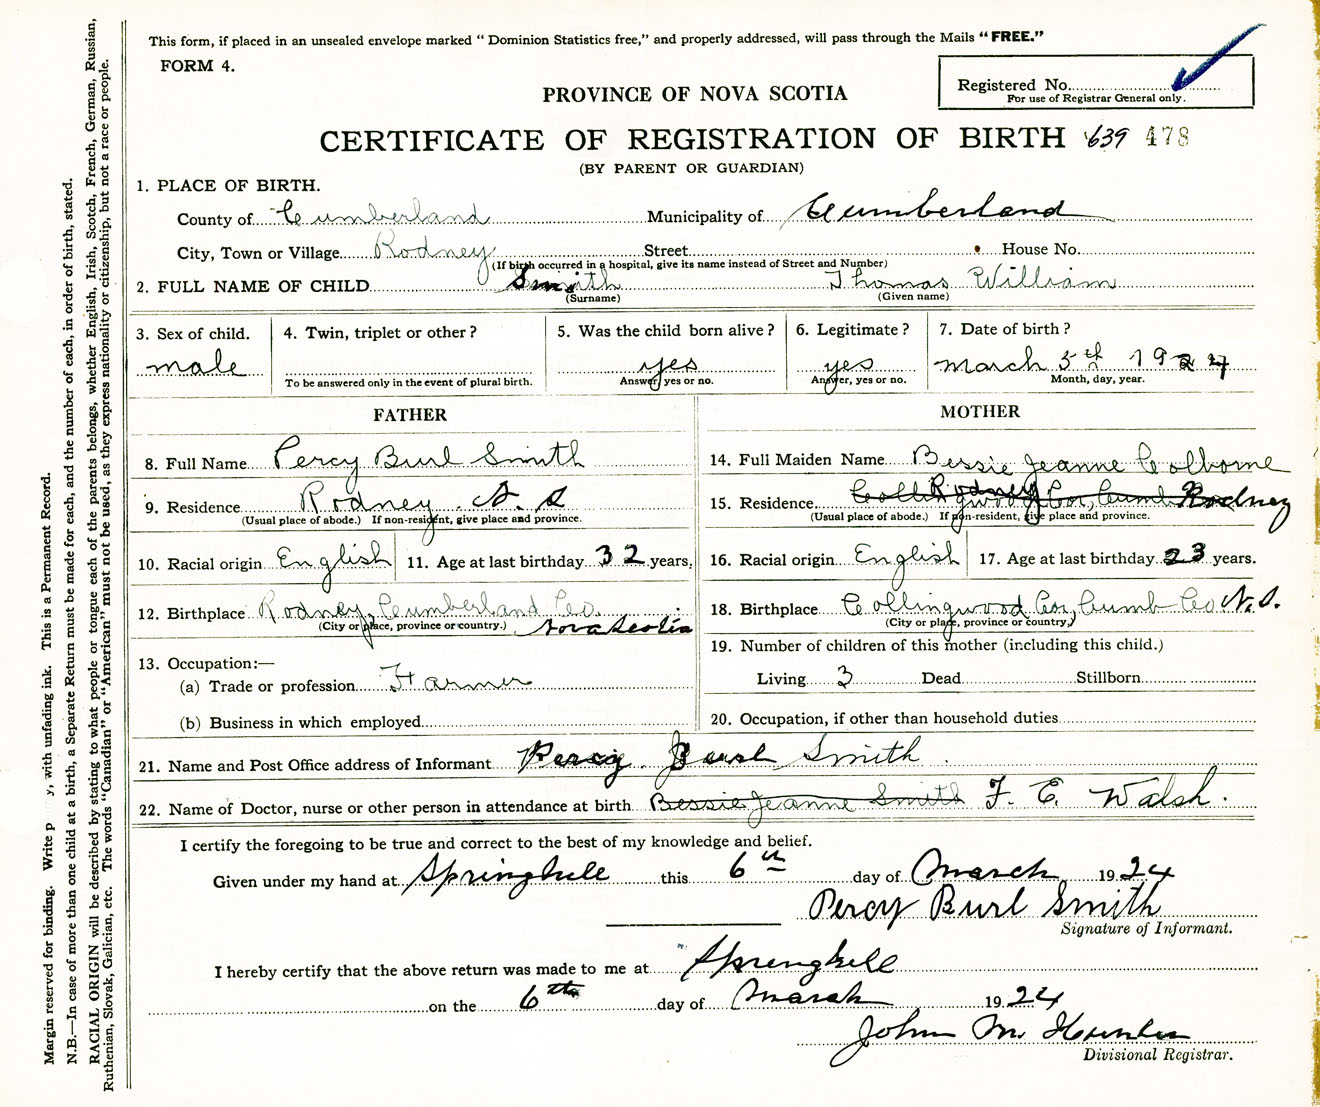 This form, if placed in an unsealed envelope marked “ Dominion Statistics free,” and properly addressed, will pass through the Mails “FREE.”
FORM 4.
Registered No.
For use of Registrar General only.
PROVINCE OF NOVA SCOTIA
CERTIFICATE OF REGISTRATION OF BIRTH 639 478
(BY PARENT OR GUARDIAN)
1. PLACE OF BIRTH.
County of Cumberland Municipality of Cumberland
City, Town or Village Rodney Street House No.
(If birth occurred in a hospital, give its name instead of Street and Number)
2. FULL NAME OF CHILD Smith Thomas William
(Surname) (Given name)
3. Sex of child. 4. Twin, triplet or other? 5. Was the child born alive? 6. Legitimate? 7. Date of birth?
male yes yes March 5th 1924
To be answered only in the event of plural birth. Answer, yes or no. Answer, yes or no. Month, day, year.
FATHER
8. Full Name Percy Burl Smith
9. Residence Rodney N. S
(Usual place of abode.) If non-resident, give place and province.
10. Racial origin English 11. Age at last birthday 32 years.
12. Birthplace Rodney, Cumberland Co.
(City or place, province or country.) Nova Scotia
13. Occupation:—
(a) Trade or profession Farmer
(b) Business in which employed
MOTHER
14. Full Maiden Name Bessie Jeanne Colborne
15. Residence Collingwood Cor, Cumb Rodney Rodney
(Usual place of abode.) If non-resident, give place and province.
16. Racial origin English 17. Age at last birthday 23 years.
18. Birthplace Collingwood Cor, Cumb Co N. S.
(City or place, province or country,)
19. Number of children of this mother (including this child.)
Living 3 Dead Stillborn
20. Occupation, if other than household duties
21. Name and Post Office address of Informant Percy Burl Smith
22. Name of Doctor, nurse or other person in attendance at birth Bessie Jeanne Smith F. E. Walsh.
I certify the foregoing to be true and correct to the best of my knowledge and belief.
Given under my hand at Springhill this 6th day of March 1924
Percy Burl Smith
Signature of Informant.
I hereby certify that the above return was made to me at Springhill
on the 6th day of March 1924
John M. Hunter
Divisional Registrar.
Margin reserved for binding. Write p y, with unfading ink. This is a Permanent Record.
N.B.—In case of more than one child at a birth, a Separate Return must be made for each, and the number of each, in order of birth, stated.
RACIAL ORIGIN will be described by stating to what people or tongue each of the parents belongs, whether English, Irish, Scotch, French, German, Russian,
Ruthenian, Slovak, Galician, etc. The words “Canadian” or “American” must not be used, as they express nationality or citizenship, but not a race or people.